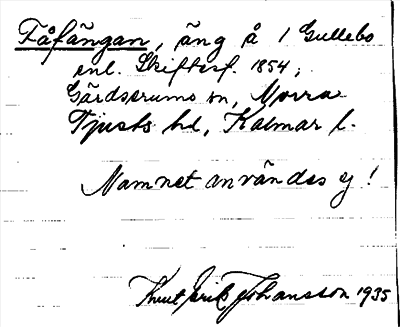 Fåfängan, äng å 1 Gullebo
enl. Skiftesf. 1854;
Gärdserums sn, Norra
Tjusts hd, Kalmar l.
Namnet användes ej!
Knut Erik Johansson 1935